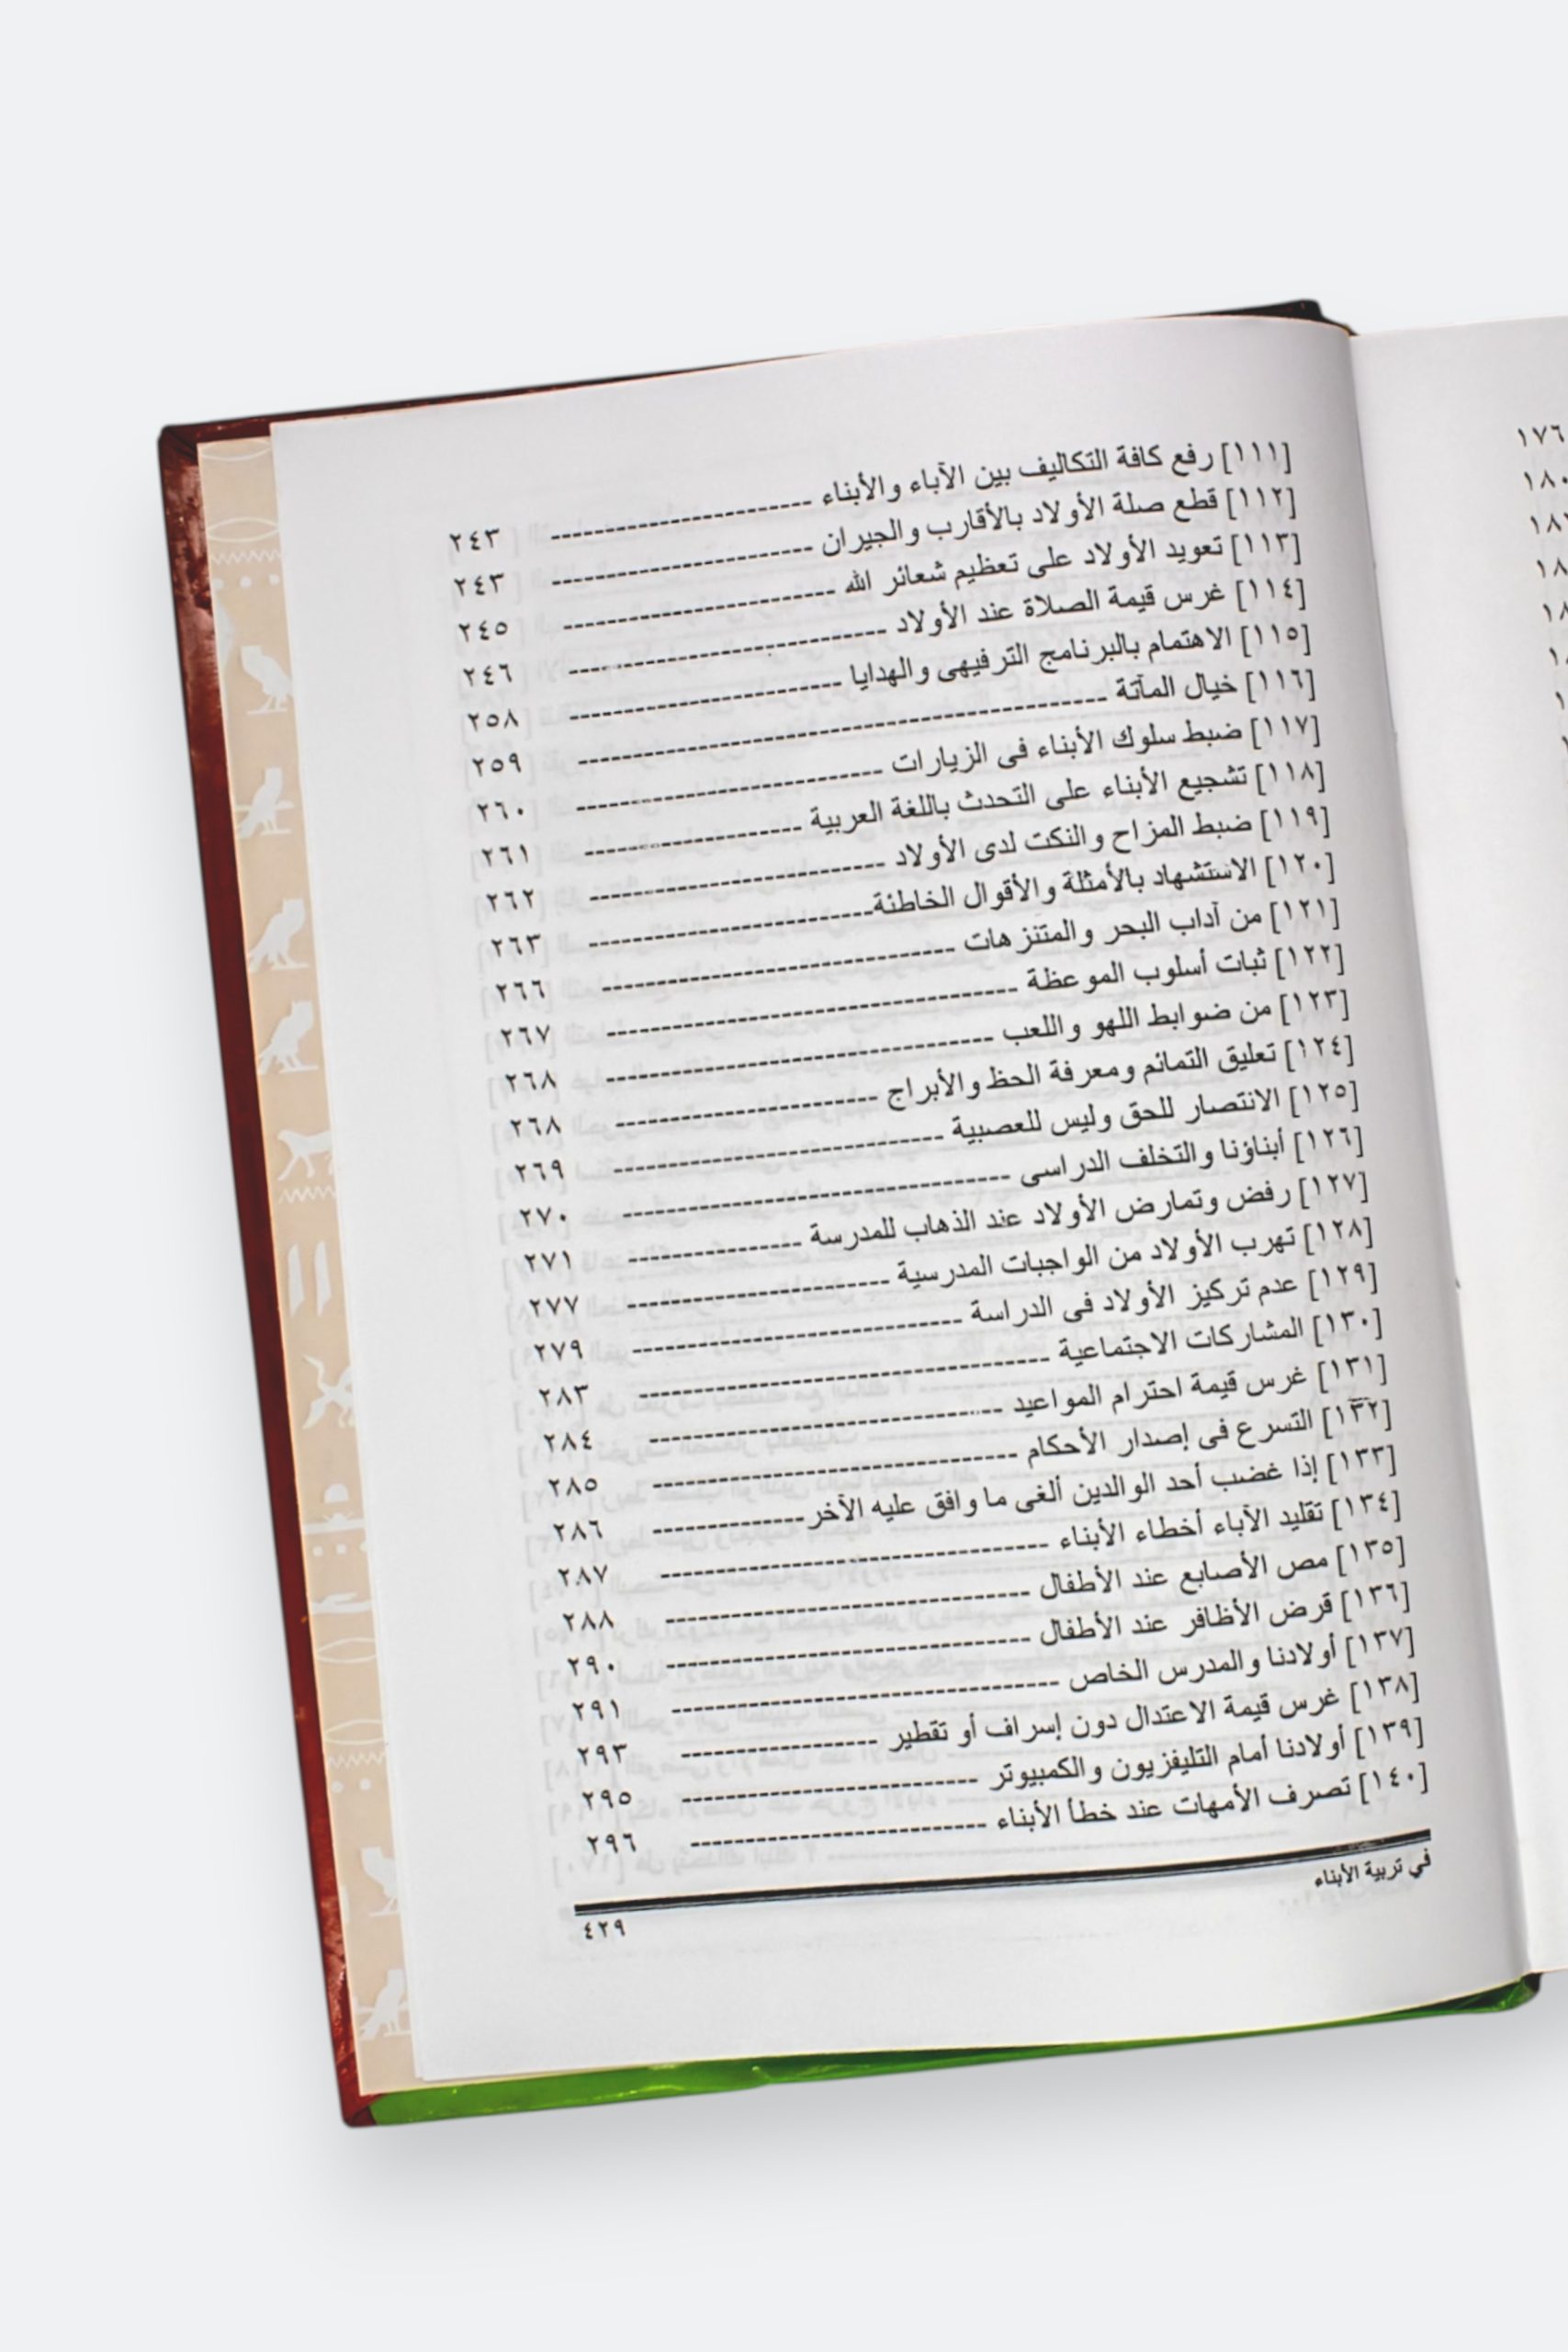 [١١١] رفع كافة التكاليف بين الآباء والأبناء ------------------------ ٢٤٣
[١١٢] قطع صلة الأولاد بالأقارب والجيران ------------------------ ٢٤٣
[١١٣] تعويد الأولاد على تعظيم شعائر الله ------------------------ ٢٤٥
[١١٤] غرس قيمة الصلاة عند الأولاد ------------------------ ٢٤٦
[١١٥] الاهتمام بالبرنامج الترفيهى والهدايا ------------------------ ٢٥٨
[١١٦] خيال المآتة ------------------------ ٢٥٩
[١١٧] ضبط سلوك الأبناء فى الزيارات ------------------------ ٢٦٠
[١١٨] تشجيع الأبناء على التحدث باللغة العربية ------------------------ ٢٦١
[١١٩] ضبط المزاح والنكت لدى الأولاد ------------------------ ٢٦٢
[١٢٠] الاستشهاد بالأمثلة والأقوال الخاطئة ------------------------ ٢٦٣
[١٢١] من آداب البحر والمتنزهات ------------------------ ٢٦٦
[١٢٢] ثبات أسلوب الموعظة ------------------------ ٢٦٧
[١٢٣] من ضوابط اللهو واللعب ------------------------ ٢٦٨
[١٢٤] تعليق التمائم ومعرفة الحظ والأبراج ------------------------ ٢٦٨
[١٢٥] الانتصار للحق وليس للعصبية ------------------------ ٢٦٩
[١٢٦] أبناؤنا والتخلف الدراسى ------------------------ ٢٧٠
[١٢٧] رفض وتمارض الأولاد عند الذهاب للمدرسة ---------------- ٢٧١
[١٢٨] تهرب الأولاد من الواجبات المدرسية ------------------------ ٢٧٧
[١٢٩] عدم تركيز الأولاد فى الدراسة ------------------------ ٢٧٩
[١٣٠] المشاركات الاجتماعية ------------------------ ٢٨٣
[١٣١] غرس قيمة احترام المواعيد ------------------------ ٢٨٤
[١٣٢] التسرع فى إصدار الأحكام ------------------------ ٢٨٥
[١٣٣] إذا غضب أحد الوالدين ألغى ما وافق عليه الآخر -------------- ٢٨٦
[١٣٤] تقليد الآباء أخطاء الأبناء ------------------------ ٢٨٧
[١٣٥] مص الأصابع عند الأطفال ------------------------ ٢٨٨
[١٣٦] قرض الأظافر عند الأطفال ------------------------ ٢٩٠
[١٣٧] أولادنا والمدرس الخاص ------------------------ ٢٩١
[١٣٨] غرس قيمة الاعتدال دون إسراف أو تقطير ------------------ ٢٩٣
[١٣٩] أولادنا أمام التليفزيون والكمبيوتر ------------------------ ٢٩٥
[١٤٠] تصرف الأمهات عند خطأ الأبناء ------------------------ ٢٩٦
في تربية الأبناء
٤٢٩
١٧٦